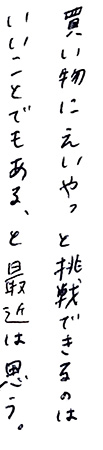 買い物にえいやっと挑戦できるのは
いいことでもある、と最近は思う。